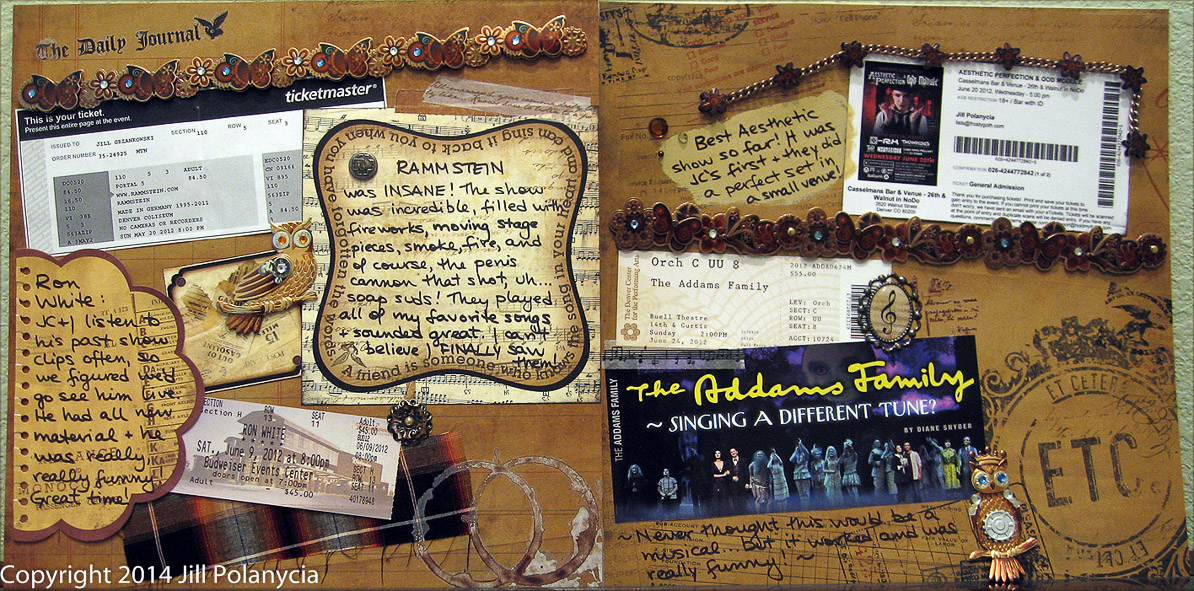 The Daily Journal
This is your ticket.
Present this entire page at the event.
ticketmaster®
ISSUED TO JILL GRZANKOWSKI
SECTION 110 ROW 5 SEAT 3
ORDER NUMBER 35-24925 MTN
110 5 3 ADULT
PORTAL 5 84.50
WWW.RAMMSTEIN.COM
RAMMSTEIN
MADE IN GERMANY 1995-2011
DENVER COLISEUM
NO CAMERAS OR RECORDERS
SUN MAY 20 2012 8:00 PM
A friend is someone who knows the songs in your heart and can sing it back to you when you have forgotten the
RAMMSTEIN
was INSANE! The show
was incredible, filled with
fireworks, moving stage
pieces, smoke, fire, and
of course, the penis
cannon that shot, uh...
soap suds! They played
all of my favorite songs
+ sounded great. I can't
believe I FINALLY saw
them!
Ron
White:
JC + I listen to
his past show
clips often, so
we figured we'd
go see him live
He had all new
material + he
was really
really funny!
Great time!
SECTION ROW SEAT
Section H 13 11
RON WHITE
SAT., June 9, 2012 at 8:00pm
Budweiser Events Center
doors open at 7:00pm
Adult $45.00
Adult
$45.00
06/09/2012
08:00pm
SECT H
ROW 13
SEAT 11
40178948
Best Aesthetic
show so far! It was
JC's first + they did
a perfect set in
a small venue!
AESTHETIC PERFECTION & GOD MODULE
Casselmans Bar & Venue - 26th & Walnut in NoDo
June 20 2012, Wednesday - 5:00 pm
AGE RESTRICTION 18+ / Bar with ID
Jill Polanycia
CONFIRMATION 026-4244772842 (1 of 2)
TICKET General Admission
WEDNESDAY JUNE 20TH
Casselmans Bar & Venue - 26th &
Walnut in NoDo
2620 Walnut Street
Denver CO 80205
Orch C UU 8
2012 ADDA0624M
$55.00
The Addams Family
Buell Theatre
14th & Curtis
Sunday 2:00PM
June 24, 2012
LEV: Orch
SECT: C
ROW: UU
SEAT: 8
ACCT: 10724
The Denver Center
for the Performing Arts
THE ADDAMS FAMILY
The Addams Family
~ SINGING A DIFFERENT TUNE?
BY DIANE SNYDER
ET CETERA
ETC
~ Never thought this would be a
musical... but it worked and was
really funny! ~
Copyright 2014 Jill Polanycia